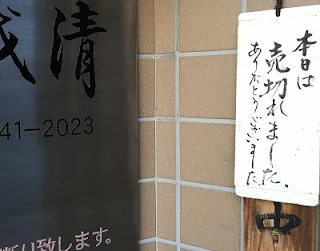 茂清
41-2023
断り致します。
本日は
売切れました。
ありがとうございました
中